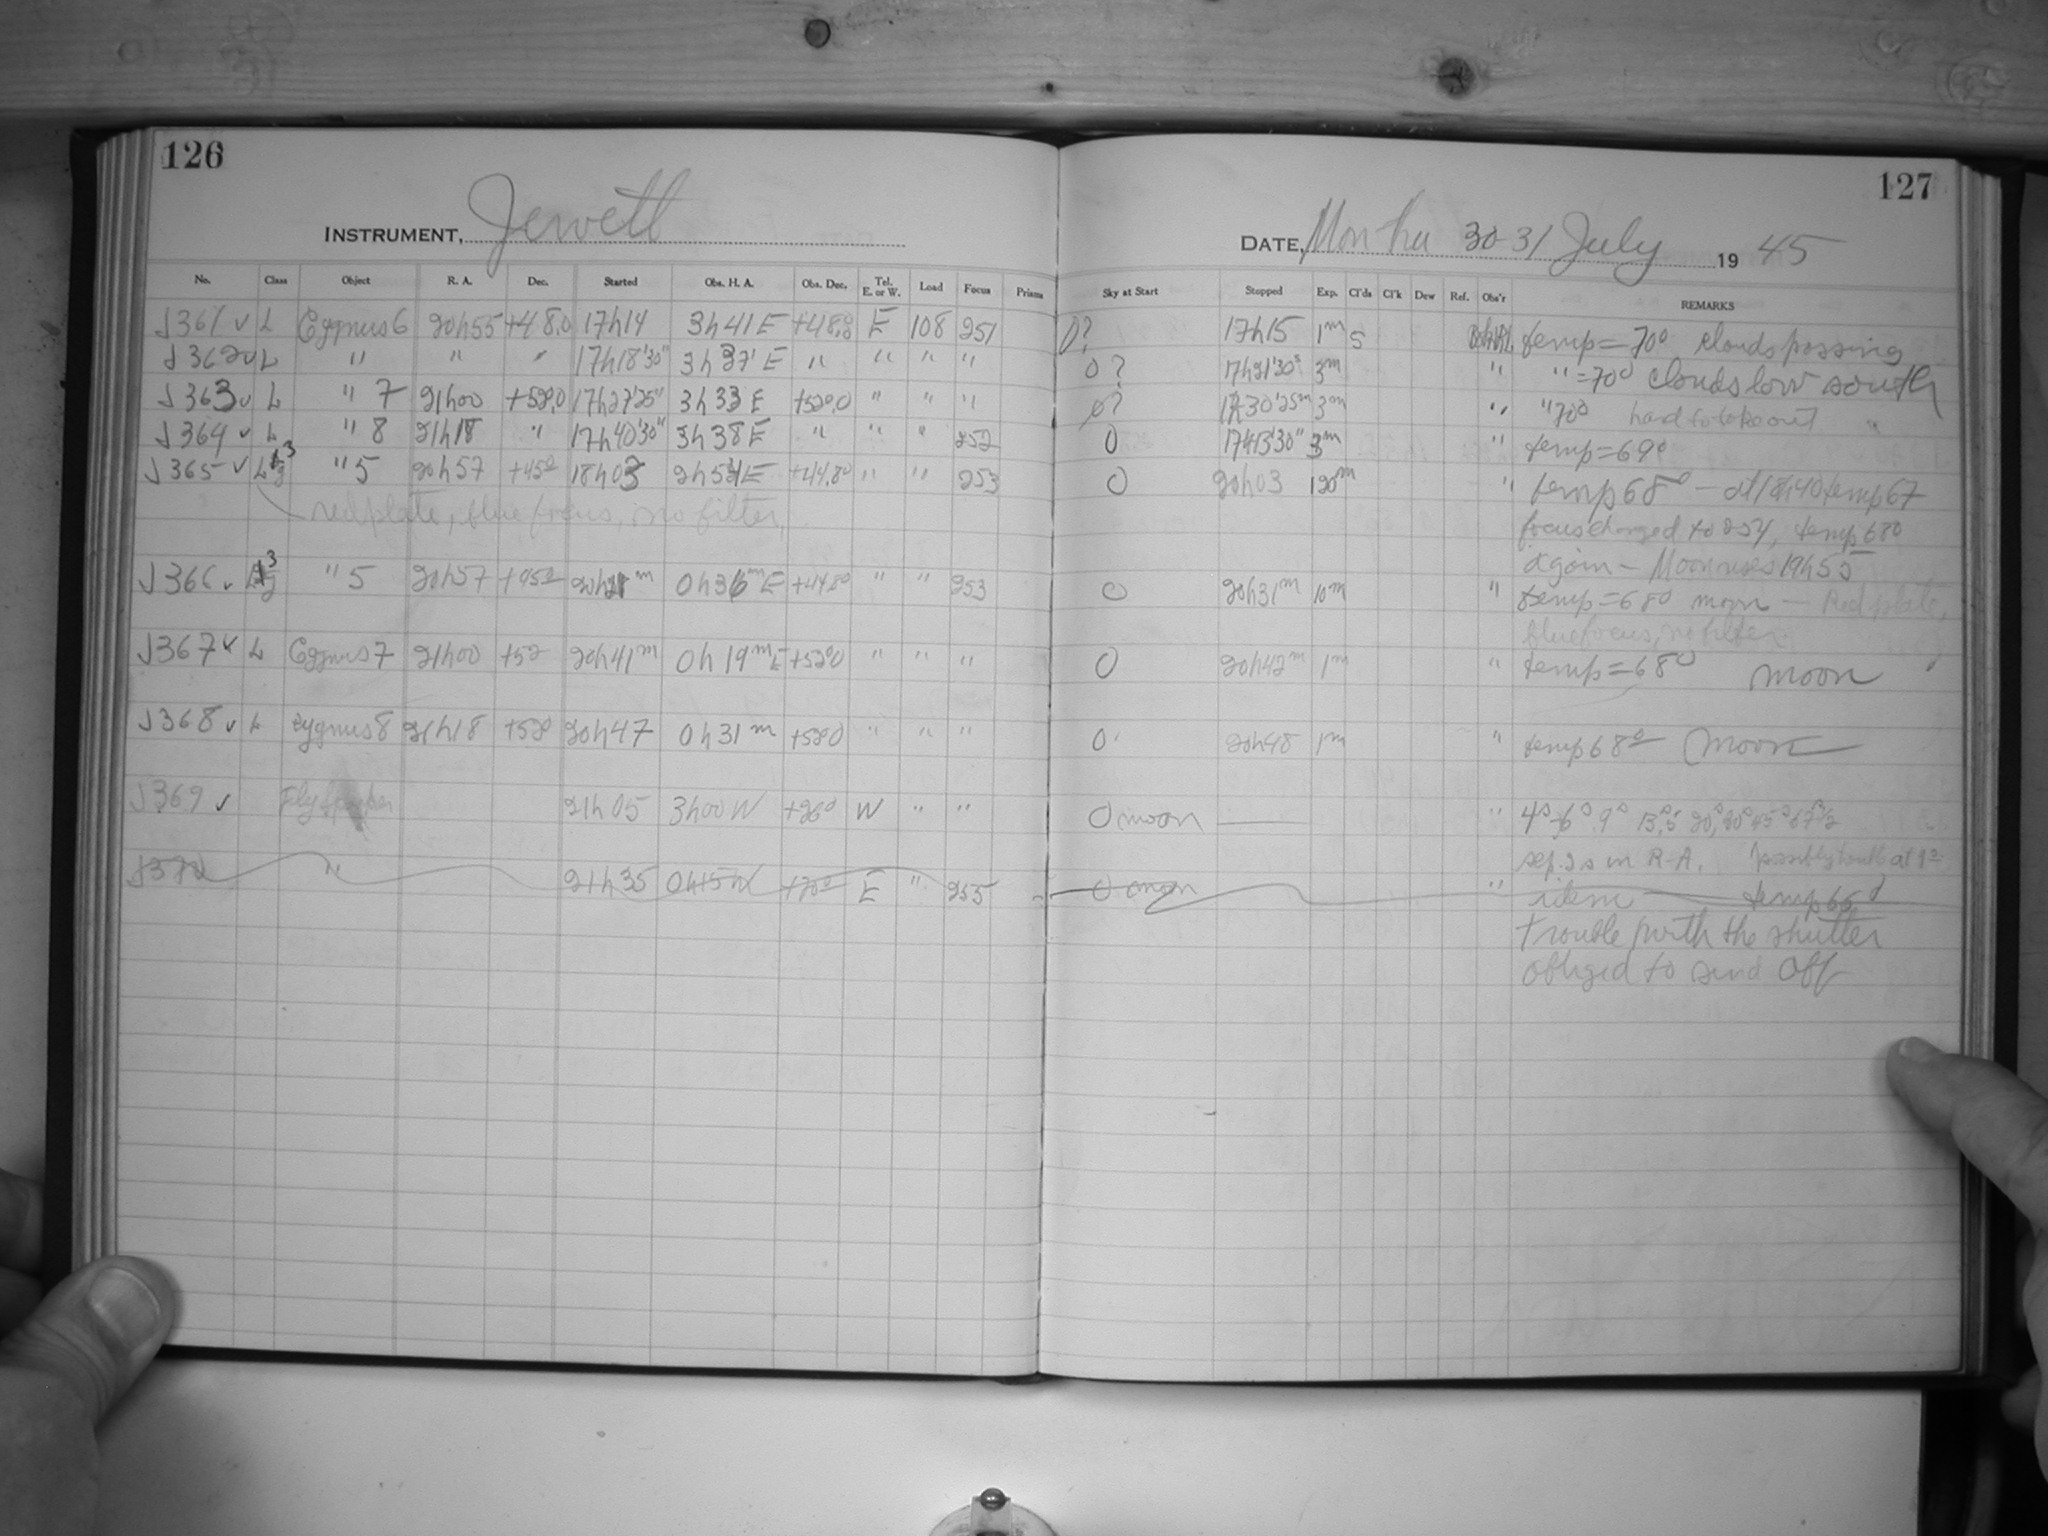 126
INSTRUMENT, Jewett
No. Class Object R. A. Dec. Started Obs. H. A. Obs. Dec. Tel. E. or W. Load Focus Prisms
J361 ✓ L Cygnus 6 20h55 +48.0 17h14 3h41E +48.0 E 108 251
J362 ✓ L " " " 17h18'30" 3h37' E " " " "
J363 ✓ L " 7 21h00 +52.0 17h27'25" 3h33 E +52.0 " " "
J364 ✓ L " 8 21h18 " 17h40'30" 3h38E " " " 252
J365 ✓ " 5 20h57 +45° 18h03 2h54E +44.8° " " 253
red plate, blue focus, no filter,
J366 ✓ " 5 20h57 +45° 20h21m 0h36mE +44.8° " " 253
J367 ✓ L Cygnus 7 21h00 +52 20h41m 0h19mE +52°0 " " "
J368 ✓ L Cygnus 8 21h18 +52° 20h47 0h31m +52°0 " " "
J369 ✓ 21h05 3h00W +26° W " "
J370 " 21h35 +20° E " 255
127
DATE, 30-31 July 1945
Sky at Start Stopped Exp. Cl'ds Cl'k Dew Ref. Obs'r REMARKS
0? 17h15 1m 5 temp=70° clouds passing
0? 17h21'30s 3m " "=70° clouds low south
0? 17h30'25m 3m " "70° hard to take out "
0 17h43'30" 3m " temp=69°
0 20h03 120m " temp 68° — at 18h40 temp 67
focus changed to 254, temp 68°
again — Moon rises 19h55
0 20h31m 10m " temp=68° moon — Red plate,
blue focus, no filter
0 20h42m 1m " temp=68° moon
0 20h48 1m " temp 68° moon
0 moon — "
sep. 2s in R-A.
0 moon " idem — temp 66°
trouble with the shutter
obliged to send off